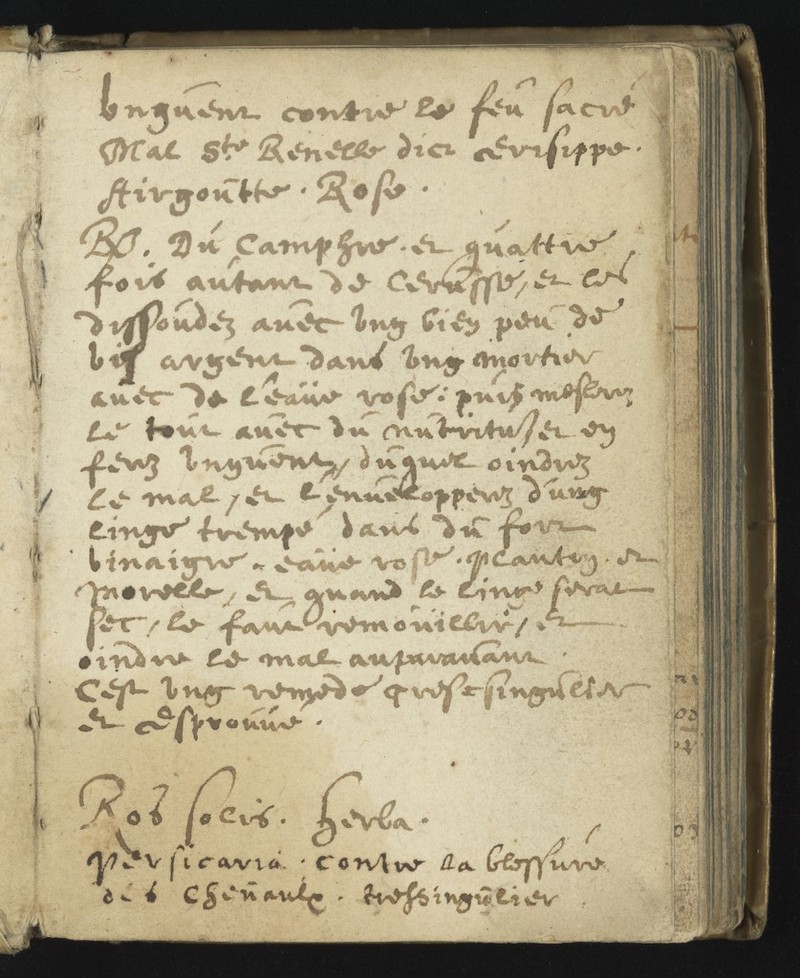 Unguent contre le feu sacré
Mal Ste Renelle dict Erisippe.
Airgoutte. Rose.
Rx. Du Camphre. et quattre
fois autant de Cerusse, et les
dissoudez avec ung bien peu de
vif argent dans ung mortier
avec de l'eaüe rose: puis meslerez
le tout avec du nutritu, et en
ferez unguent, duquel oindrez
le mal, et l'enuelopperez d'ung
linge trempé dans du fort
vinaigre. eaüe rose. plantin. et
morelle, et quand le linge serat
sec, le faut remouillir, et
oindre le mal auparauant.
C'est ung remede tressingulier
et esprouué.
Ros solis. herba.
Persicaria. contre la blessure
des cheuaulx. tressingulier